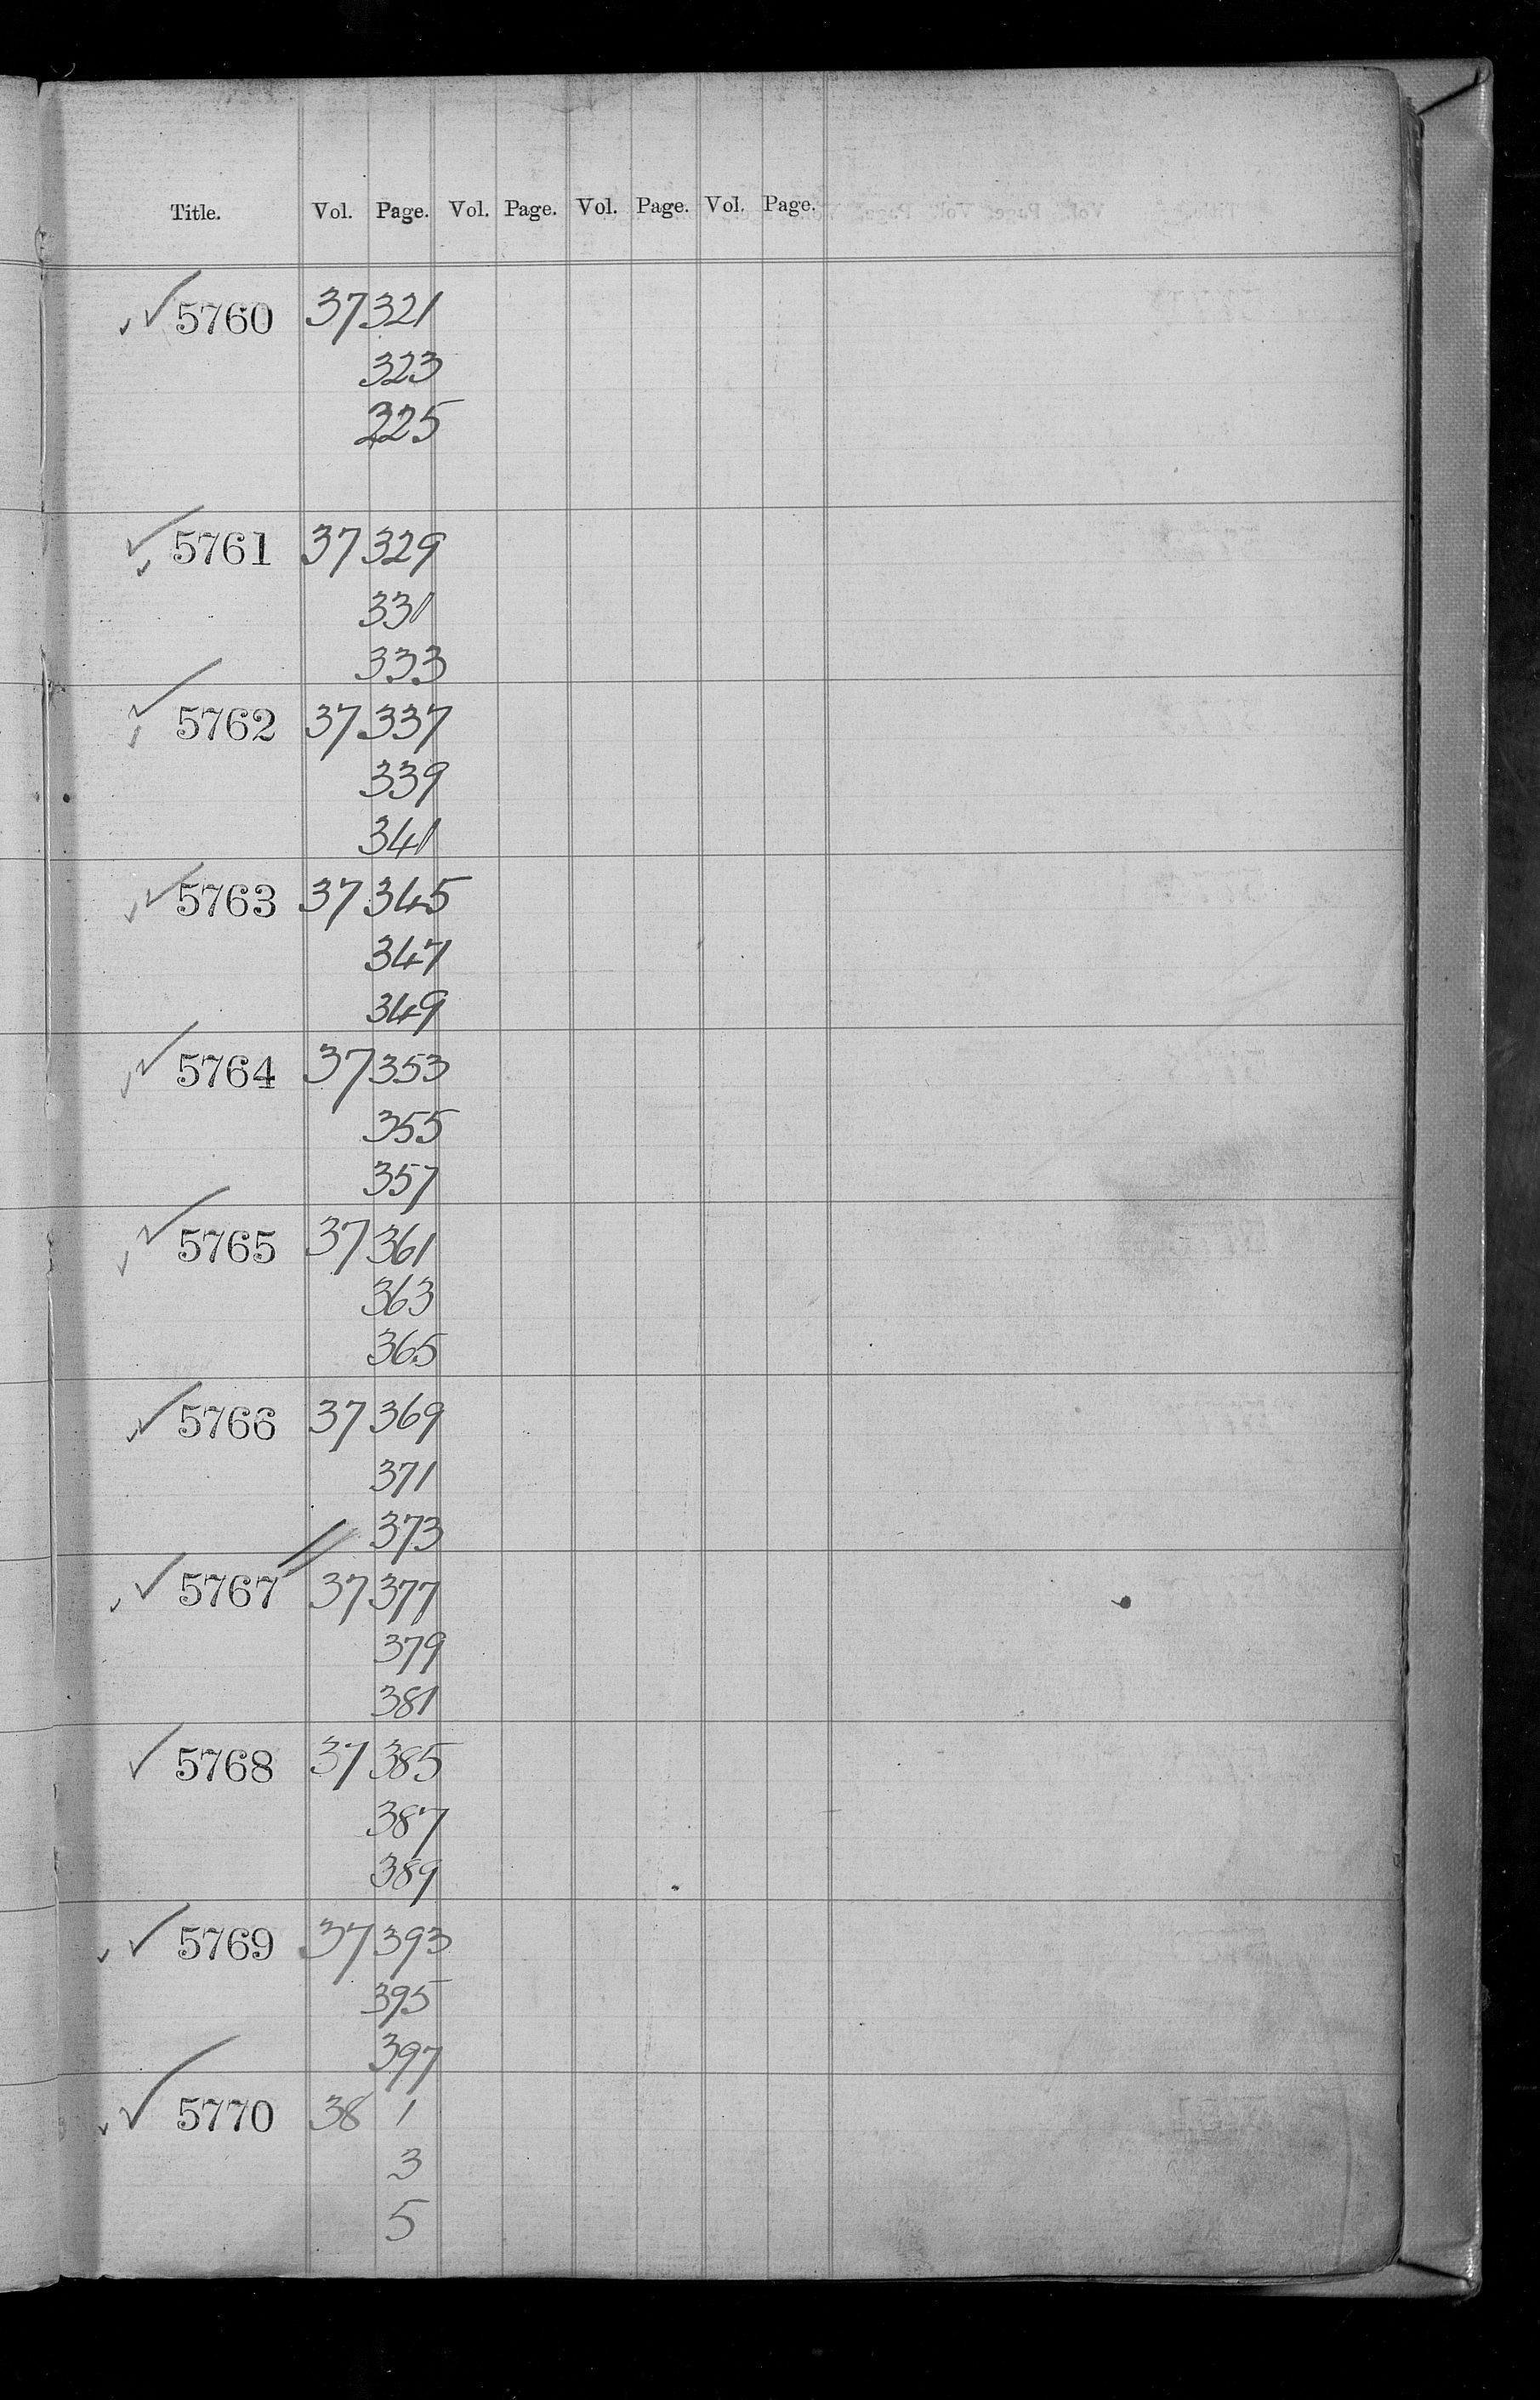 Title. Vol. Page. Vol. Page. Vol. Page. Vol. Page.
✓✓ 5760 37 321
323
325
✓✓ 5761 37 329
331
333
✓✓ 5762 37 337
339
341
✓✓ 5763 37 345
347
349
✓✓ 5764 37 353
355
357
✓✓ 5765 37 361
363
365
✓✓ 5766 37 369
371
373
✓✓ 5767 // 37 377
379
381
✓ 5768 37 385
387
389
✓✓ 5769 37 393
395
397
✓✓ 5770 38 1
3
5